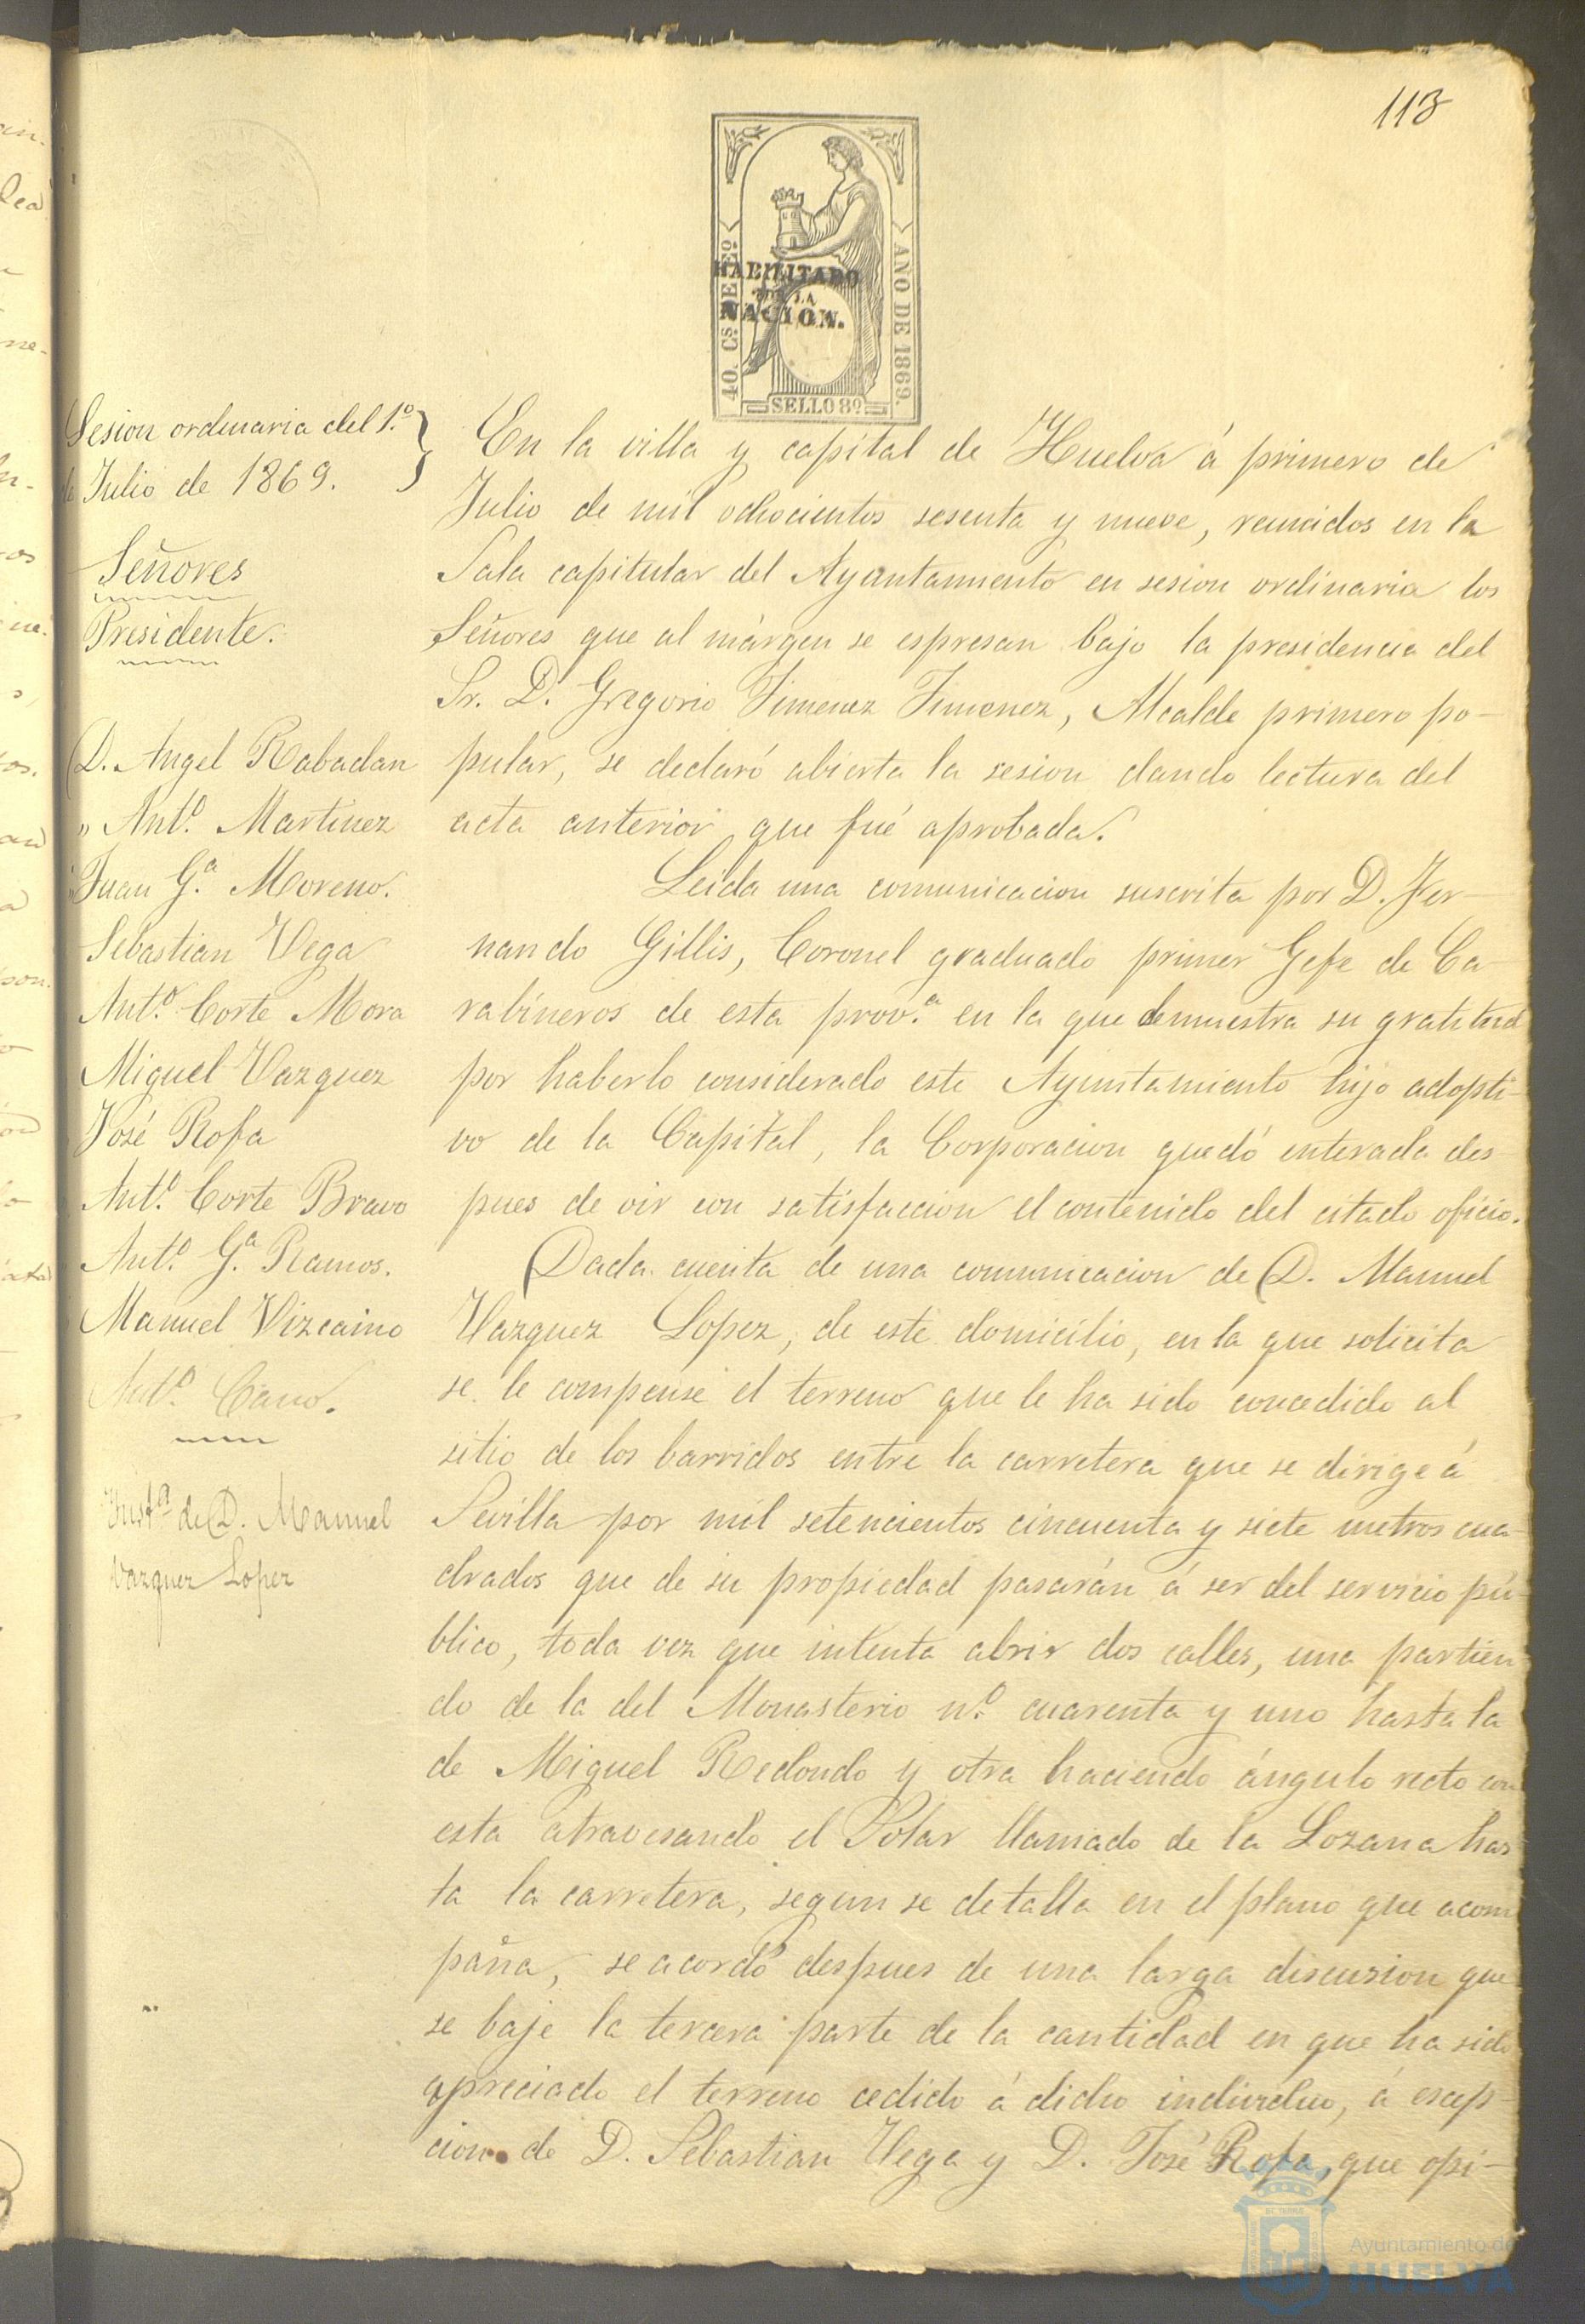 113
40. Cs. DE Eº
AÑO DE 1869.
HABILITADO
POR LA
NACION.
SELLO 8º
Sesion ordinaria del 1.º
de Julio de 1869.
Señores
Presidente.
D. Angel Rabadan
" Ant.º Martinez
Juan G.ª Moreno.
Sebastian Vega
Ant.º Corte Mora
Miguel Vazquez
José Rofa
Ant.º Corte Bravo
Ant.º G.ª Ramos.
Manuel Vizcaino
Ant.º Cano.
Inst.ª de D. Manuel
Vazquez Lopez
En la villa y capital de Huelva á primero de
Julio de mil ochocientos sesenta y nueve, reunidos en la
Sala capitular del Ayuntamiento en sesion ordinaria los
Señores que al márgen se espresan bajo la presidencia del
Sr. D. Gregorio Jimenez Jimenez, Alcalde primero po-
pular, se declaró abierta la sesion dando lectura del
acta anterior que fué aprobada.
Leida una comunicacion suscrita por D. Fer-
nando Gillis, Coronel graduado primer Gefe de Ca-
rabineros de esta prov.ª en la que demuestra su gratitud
por haberlo considerado este Ayuntamiento hijo adopti-
vo de la Capital, la Corporacion quedó enterada des-
pues de oir con satisfaccion el contenido del citado oficio.
Dada cuenta de una comunicacion de D. Manuel
Vazquez Lopez, de este domicilio, en la que solicita
se le compense el terreno que le ha sido concedido al
sitio de los barridos entre la carretera que se dirige á
Sevilla por mil setencientos cincuenta y siete metros cua-
drados que de su propiedad pasarán á ser del servicio pú-
blico, toda vez que intenta abrir dos calles, una partien
do de la del Monasterio n.º cuarenta y uno hasta la
de Miguel Redondo y otra haciendo ángulo recto con
esta atravesando el Solar llamado de la Lozana has
ta la carretera, segun se detalla en el plano que acom
paña, se acordó despues de una larga discusion que
se baje la tercera parte de la cantidad en que ha sido
apreciado el terreno cedido á dicho individuo, á escep-
cion de D. Sebastian Vega y D. José Rofa, que opi-
Ayuntamiento de
HUELVA